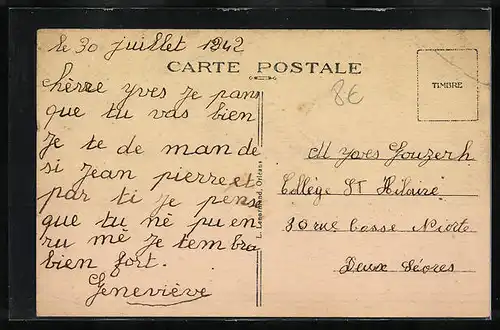 le 30 juillet 1942
CARTE POSTALE
TIMBRE
8€
chère yves je pans
que tu vas bien
je te de man de
si jean pierre et
par ti je pense
que tu né pu en
ru mé je tem bra
bien fort.
Geneviève
L. Lenormand, Orléans
M yves Gouzerh
Collège St Hilaire
30 rue basse Niorte
Deux Sèvres